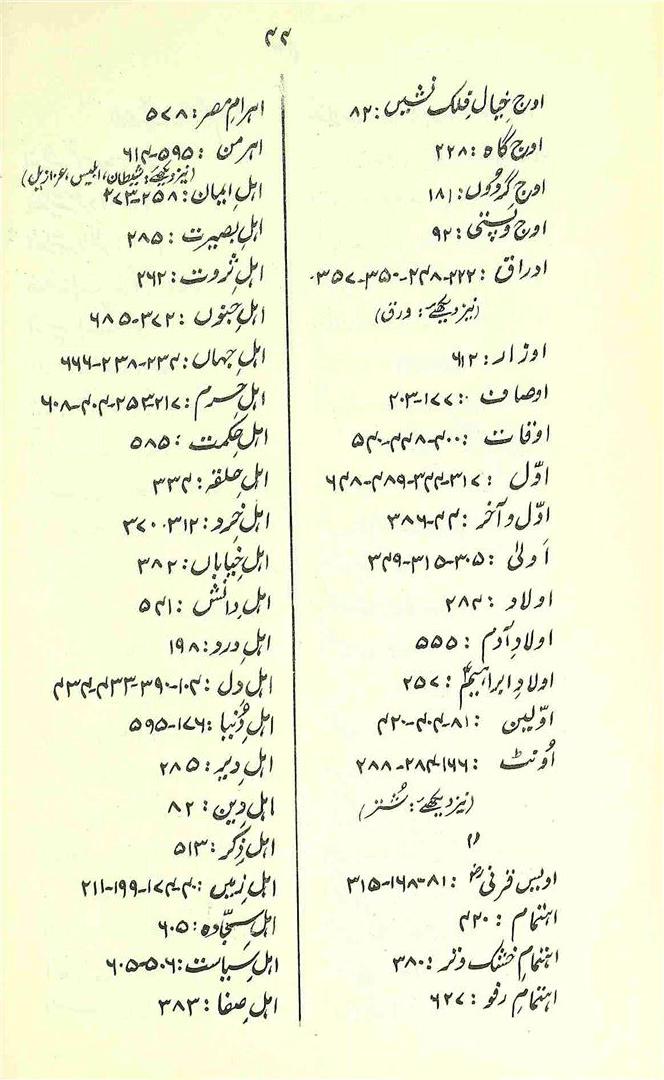 ۴۴
اوجِ خیالِ فلک نشیں: ۸۲
اوج گاہ: ۲۲۸
اوجِ گردوں: ۱۸۱
اوج و پستی: ۹۲
اوراق: ۲۲۲-۲۴۸-۳۵۰-۳۵۷
(نیز دیکھیے: ورق)
اوزار: ۶۱۲
اوصاف: ۱۷۷-۲۰۳
اوقات: ۴۰۰-۴۴۸-۵۴۰
اوّل: ۳۱۷-۳۴۴-۴۸۹-۶۴۸
اوّل و آخر: ۴۴-۳۸۶
اَولیٰ: ۳۰۵-۳۱۵-۳۴۹
اولاد: ۲۸۴
اولادِ آدم: ۵۵۵
اولادِ ابراہیمؑ: ۲۵۷
اوّلین: ۸۱-۴۰۴-۴۲۰
اُونٹ: ۱۶۶-۲۸۴-۲۸۸
(نیز دیکھیے: شُتر)
اویس قرنیؓ: ۸۱-۱۶۸-۳۱۵
اہتمام: ۴۲۰
اہتمامِ خشک و تر: ۳۸۰
اہتمامِ رفو: ۶۲۷
اہرامِ مصر: ۵۷۸
اہرمن: ۵۹۵-۶۱۴
(نیز دیکھیے: شیطان، ابلیس، عزازیل)
اہلِ ایمان: ۲۵۸-۲۷۳
اہلِ بصیرت: ۲۸۵
اہلِ ثروت: ۲۶۲
اہلِ جنوں: ۳۷۲-۶۸۵
اہلِ جہاں: ۲۳۴-۲۳۸-۶۶۶
اہلِ حرم: ۲۱۷-۲۵۳-۴۰۴-۶۰۸
اہلِ حکمت: ۵۸۵
اہلِ حلقہ: ۳۳۴
اہلِ خرد: ۳۱۲-۳۷۰
اہلِ خیاباں: ۳۸۲
اہلِ دانش: ۵۴۱
اہلِ درد: ۱۹۸
اہلِ دل: ۱۰۴-۳۹۰-۴۳۳-۴۳۴
اہلِ دُنیا: ۱۷۶-۵۹۵
اہلِ دیر: ۲۸۵
اہلِ دین: ۸۲
اہلِ ذکر: ۵۱۳
اہلِ زمیں: ۴۰-۱۷۴-۱۹۹-۲۱۱
اہلِ سجّادہ: ۶۰۵
اہلِ سیاست: ۵۰۶-۶۰۵
اہلِ صفا: ۳۸۳